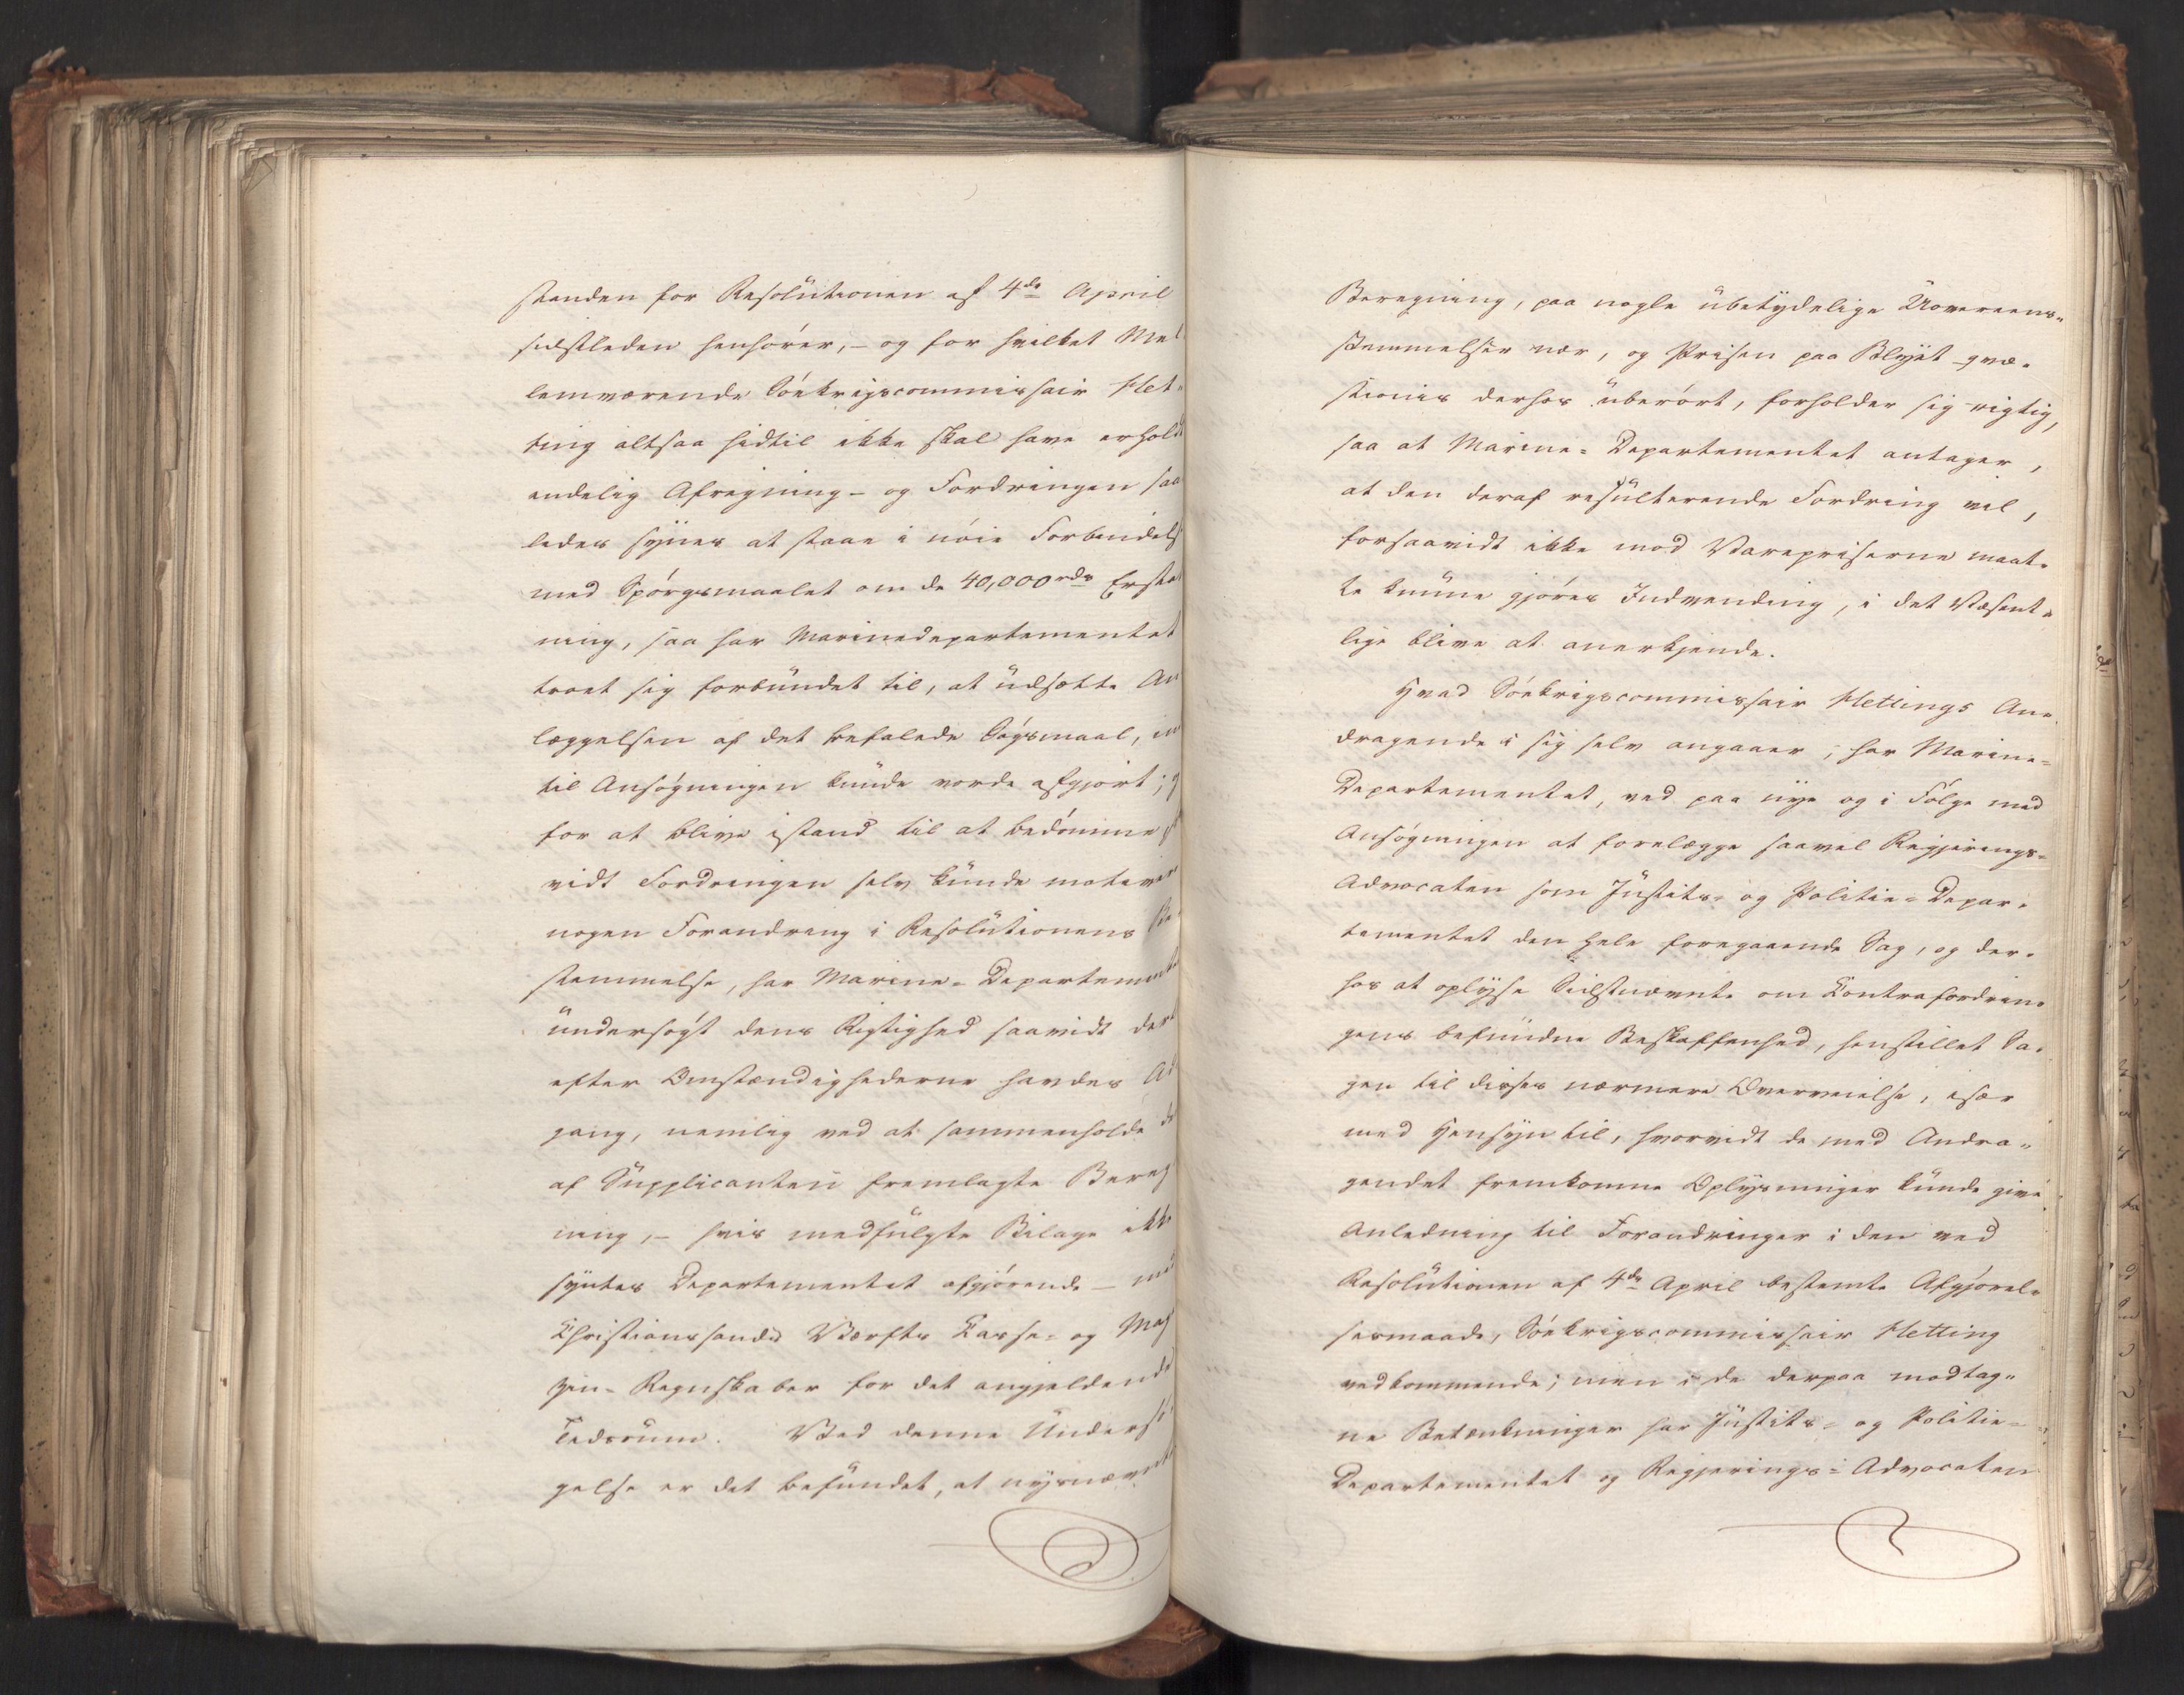 standen for Resolutionen af 4de April
sidstleden henhører, - og for hvilket Mel
lemværende Søekrigscommissair Het-
ting altsaa hidtil ikke skal have erholdt
endelig Afregning - og Fordringen saa
ledes synes at staae i nøie Forbindels
med Spørgsmaalet om de 40,000 rds Erstat
ning, saa har Marinedepartementet
troet sig forbundet til, at udsætte An
læggelsen af det befalede Søgsmaal, ind
til Ansøgningen kunde vorde afgjort; og
for at blive istand til at bedømme hvor
vidt Fordringen selv kunde motivere
nogen Forandring i Resolutionens Be-
stemmelse, har Marine-Departementet
undersøgt dens Rigtighed saavidt dert
efter Omstændighederne havdes Ad
gang, nemlig ved at sammenholde de
af Supplicanten fremlagte Bereg
ning, - hvis medfulgte Bilage ikke
syntes Departementet afgjørende - med
Christianssands Værfts Casse- og Maga
zin-Regnskaber for det angjeldende
Tidsrum. Ved denne Undersø-
gelse er det befundet, at nysnævnte
Beregning, paa nogle ubetydelige Uovereens-
stemmelser nær, og Prisen paa Blyet qvæ-
stionis derhos uberørt, forholder sig rigtig,
saa at Marine-Departementet antager,
at den deraf resulterende Fordring vil,
forsaavidt ikke mod Varepriserne maat-
te kunne gjøres Indvending, i det Væsent-
lige blive at anerkjende.
Hvad Søekrigscommissair Hettings An-
dragende i sig selv angaaer, har Marine-
Departementet, ved paa nye og i Følge med
Ansøgningen at forelægge saavel Regjerings-
Advocaten som Justits- og Politie-Depar-
tementet den hele foregaaende Sag, og der-
hos at oplyse Sidstnævnte om Contrafordrin-
gens befundne Beskaffenhed, henstillet Sa-
gen til disses nærmere Overveielse, især
med Hensyn til, hvorvidt de med Andra-
gendet fremkomne Oplysninger kunde give
Anledning til Forandringer i den ved
Resolutionen af 4de April bestemte Afgjørel-
sesmaade, Søekrigscommissair Hetting
vedkommende; men i de derpaa modtag-
ne Betænkninger har Justits- og Politie-
Departementet og Regjerings-Advocaten